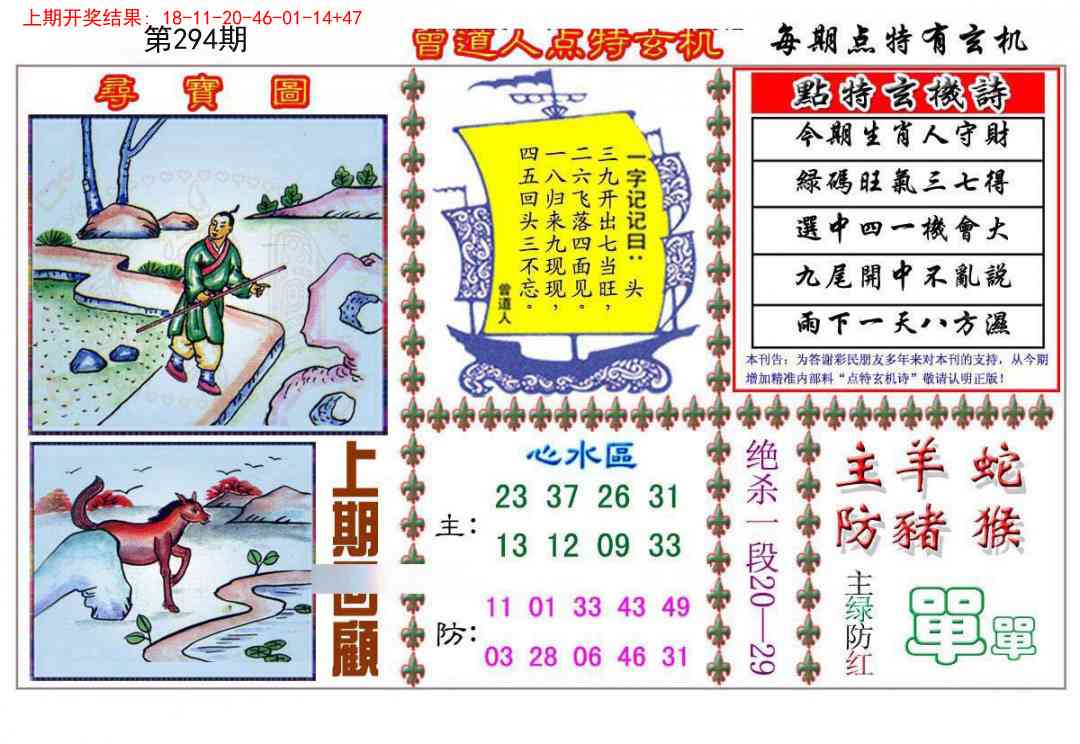 上期开奖结果：18-11-20-46-01-14+47
第294期
曾道人点特玄机
每期点特有玄机
尋寶圖
一字记记曰：头
三九开出七当旺，
二六飞落四面见。
一八归来九现现，
四五回头三不忘。
曾道人
點特玄機詩
今期生肖人守財
綠碼旺氣三七得
選中四一機會大
九尾開中不亂説
雨下一天八方濕
本刊告：为答谢彩民朋友多年来对本刊的支持，从今期
增加精准内部料“点特玄机诗”敬请认明正版！
上期回顧
心水區
主：
23 37 26 31
13 12 09 33
防：
11 01 33 43 49
03 28 06 46 31
绝杀一段20—29
主羊蛇
防豬猴
主绿防红
單單